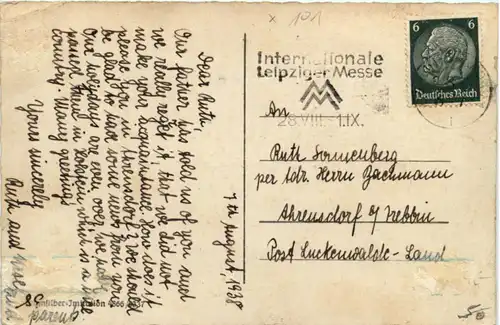 x 101
Internationale
Leipziger Messe
28.VIII. - 1.IX.
6 6
Deutsches Reich
7th August, 1938
Dear Ruth,
Our father has told us of you and
we really regret it that we did not
make your acquaintance. How does it
please you in Ahrensdorf? We should
be glad to hear some news from you.
Our holydays are even over, we have
passed them in which is a nice
country. Many greetings
Yours sincerely
Ruth and
parents
An
Ruth Sonnenberg
per Adr. Herrn Bachmann
Ahrensdorf b/ Trebbin
Post Luckenwalde-Land